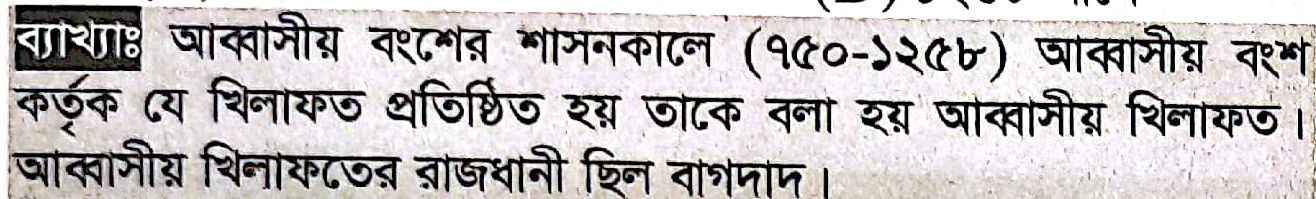 ব্যাখ্যাঃ আব্বাসীয় বংশের শাসনকালে (৭৫০-১২৫৮) আব্বাসীয় বংশ
কর্তৃক যে খিলাফত প্রতিষ্ঠিত হয় তাকে বলা হয় আব্বাসীয় খিলাফত।
আব্বাসীয় খিলাফতের রাজধানী ছিল বাগদাদ।